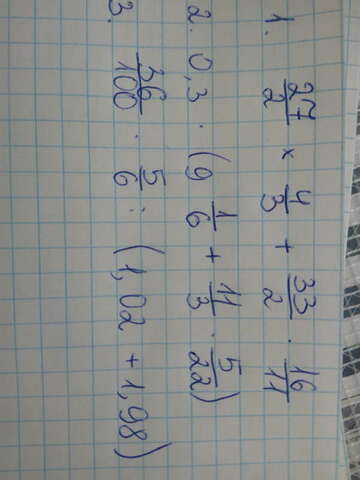 1. 27/2 × 4/3 + 33/2 · 16/11
2. 0,3 · (9 1/6 + 11/3 · 5/22)
3. 36/100 · 5/6 : (1,02 + 1,98)